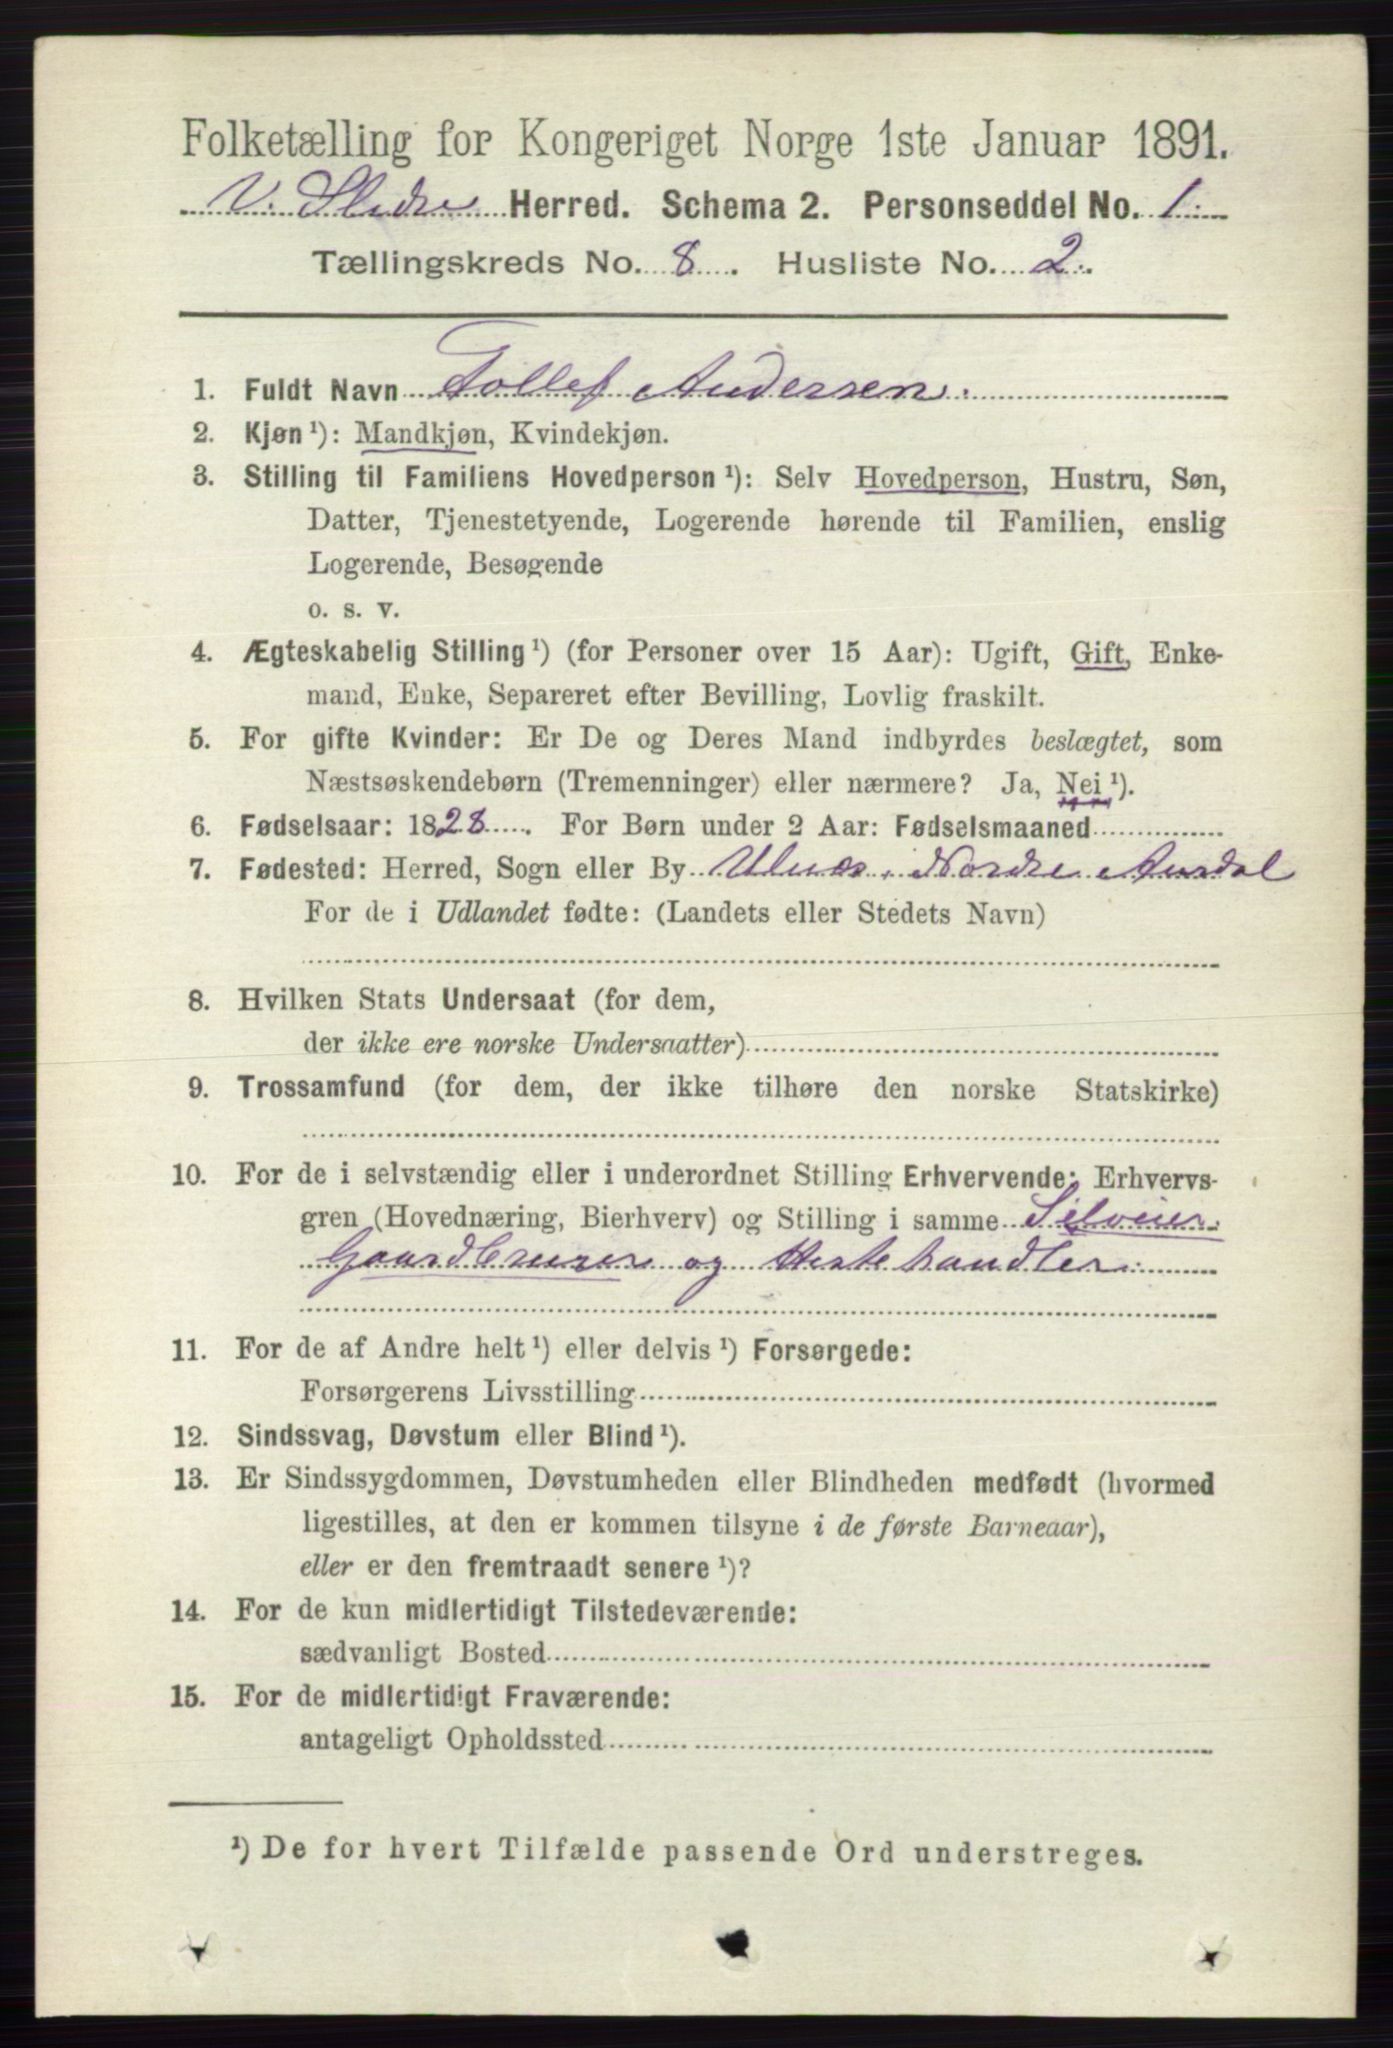 Folketælling for Kongeriget Norge 1ste Januar 1891.
V. Slidre Herred. Schema 2. Personseddel No. 1.
Tællingskreds No. 8. Husliste No. 2.
1. Fuldt Navn Tollef Andersen.
2. Kjøn¹): Mandkjøn, Kvindekjøn.
3. Stilling til Familiens Hovedperson¹): Selv Hovedperson, Hustru, Søn,
Datter, Tjenestetyende, Logerende hørende til Familien, enslig
Logerende, Besøgende
o. s. v.
4. Ægteskabelig Stilling¹) (for Personer over 15 Aar): Ugift, Gift, Enke-
mand, Enke, Separeret efter Bevilling, Lovlig fraskilt.
5. For gifte Kvinder: Er De og Deres Mand indbyrdes beslægtet, som
Næstsøskendebørn (Tremenninger) eller nærmere? Ja, Nei¹).
6. Fødselsaar: 1828. For Børn under 2 Aar: Fødselsmaaned
7. Fødested: Herred, Sogn eller By Ulnes, Nordre Aurdal
For de i Udlandet fødte: (Landets eller Stedets Navn)
8. Hvilken Stats Undersaat (for dem,
der ikke ere norske Undersaatter)
9. Trossamfund (for dem, der ikke tilhøre den norske Statskirke)
10. For de i selvstændig eller i underordnet Stilling Erhvervende: Erhvervs-
gren (Hovednæring, Bierhverv) og Stilling i samme Selveier
Gaardbruger og Hestehandler.
11. For de af Andre helt¹) eller delvis¹) Forsørgede:
Forsørgerens Livsstilling
12. Sindssvag, Døvstum eller Blind¹).
13. Er Sindssygdommen, Døvstumheden eller Blindheden medfødt (hvormed
ligestilles, at den er kommen tilsyne i de første Barneaar),
eller er den fremtraadt senere¹)?
14. For de kun midlertidigt Tilstedeværende:
sædvanligt Bosted
15. For de midlertidigt Fraværende:
antageligt Opholdssted
¹) De for hvert Tilfælde passende Ord understreges.